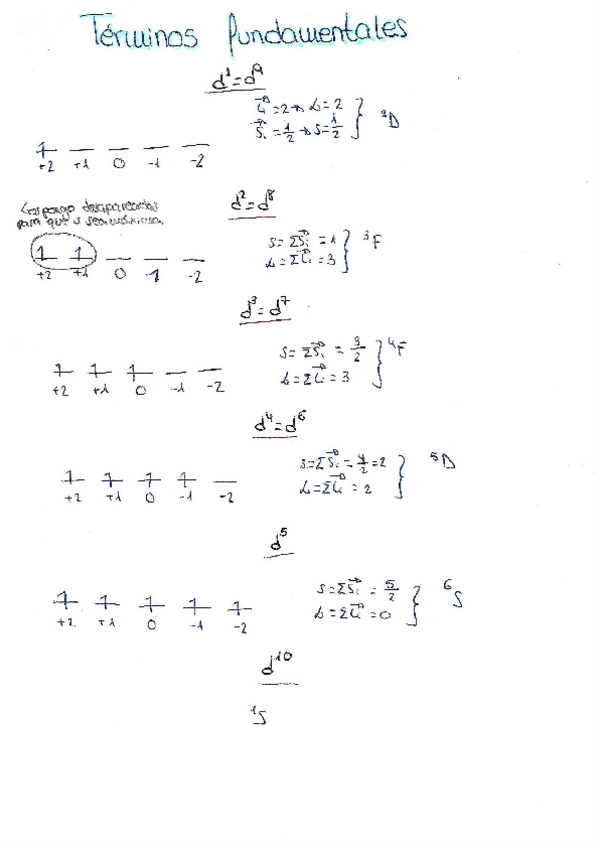 Términos fundamentales
d¹=d⁹
L⃗ᵢ=2→L=2
S⃗ᵢ=1/2→S=1/2 } ²D
+2 +1 0 -1 -2
d²=d⁸
Los pongo desapareados
para que s sea máxima.
S=ΣS⃗ᵢ=1
L=ΣL⃗ᵢ=3 } ³F
+2 +1 0 -1 -2
d³=d⁷
S=ΣS⃗ᵢ=3/2
L=ΣL⃗ᵢ=3 } ⁴F
+2 +1 0 -1 -2
d⁴=d⁶
S=ΣS⃗ᵢ=4/2=2
L=ΣL⃗ᵢ=2 } ⁵D
+2 +1 0 -1 -2
d⁵
S=ΣS⃗ᵢ=5/2
L=ΣL⃗ᵢ=0 } ⁶S
+2 +1 0 -1 -2
d¹⁰
¹S